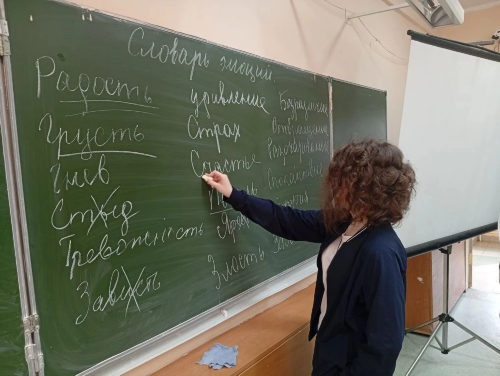 Словарь эмоций
Радость
Грусть
Гнев
Стыд
Тревожность
Зависть
удивление
Страх
Счастье
Злость
Безразличие
Отвращение
Разочарование